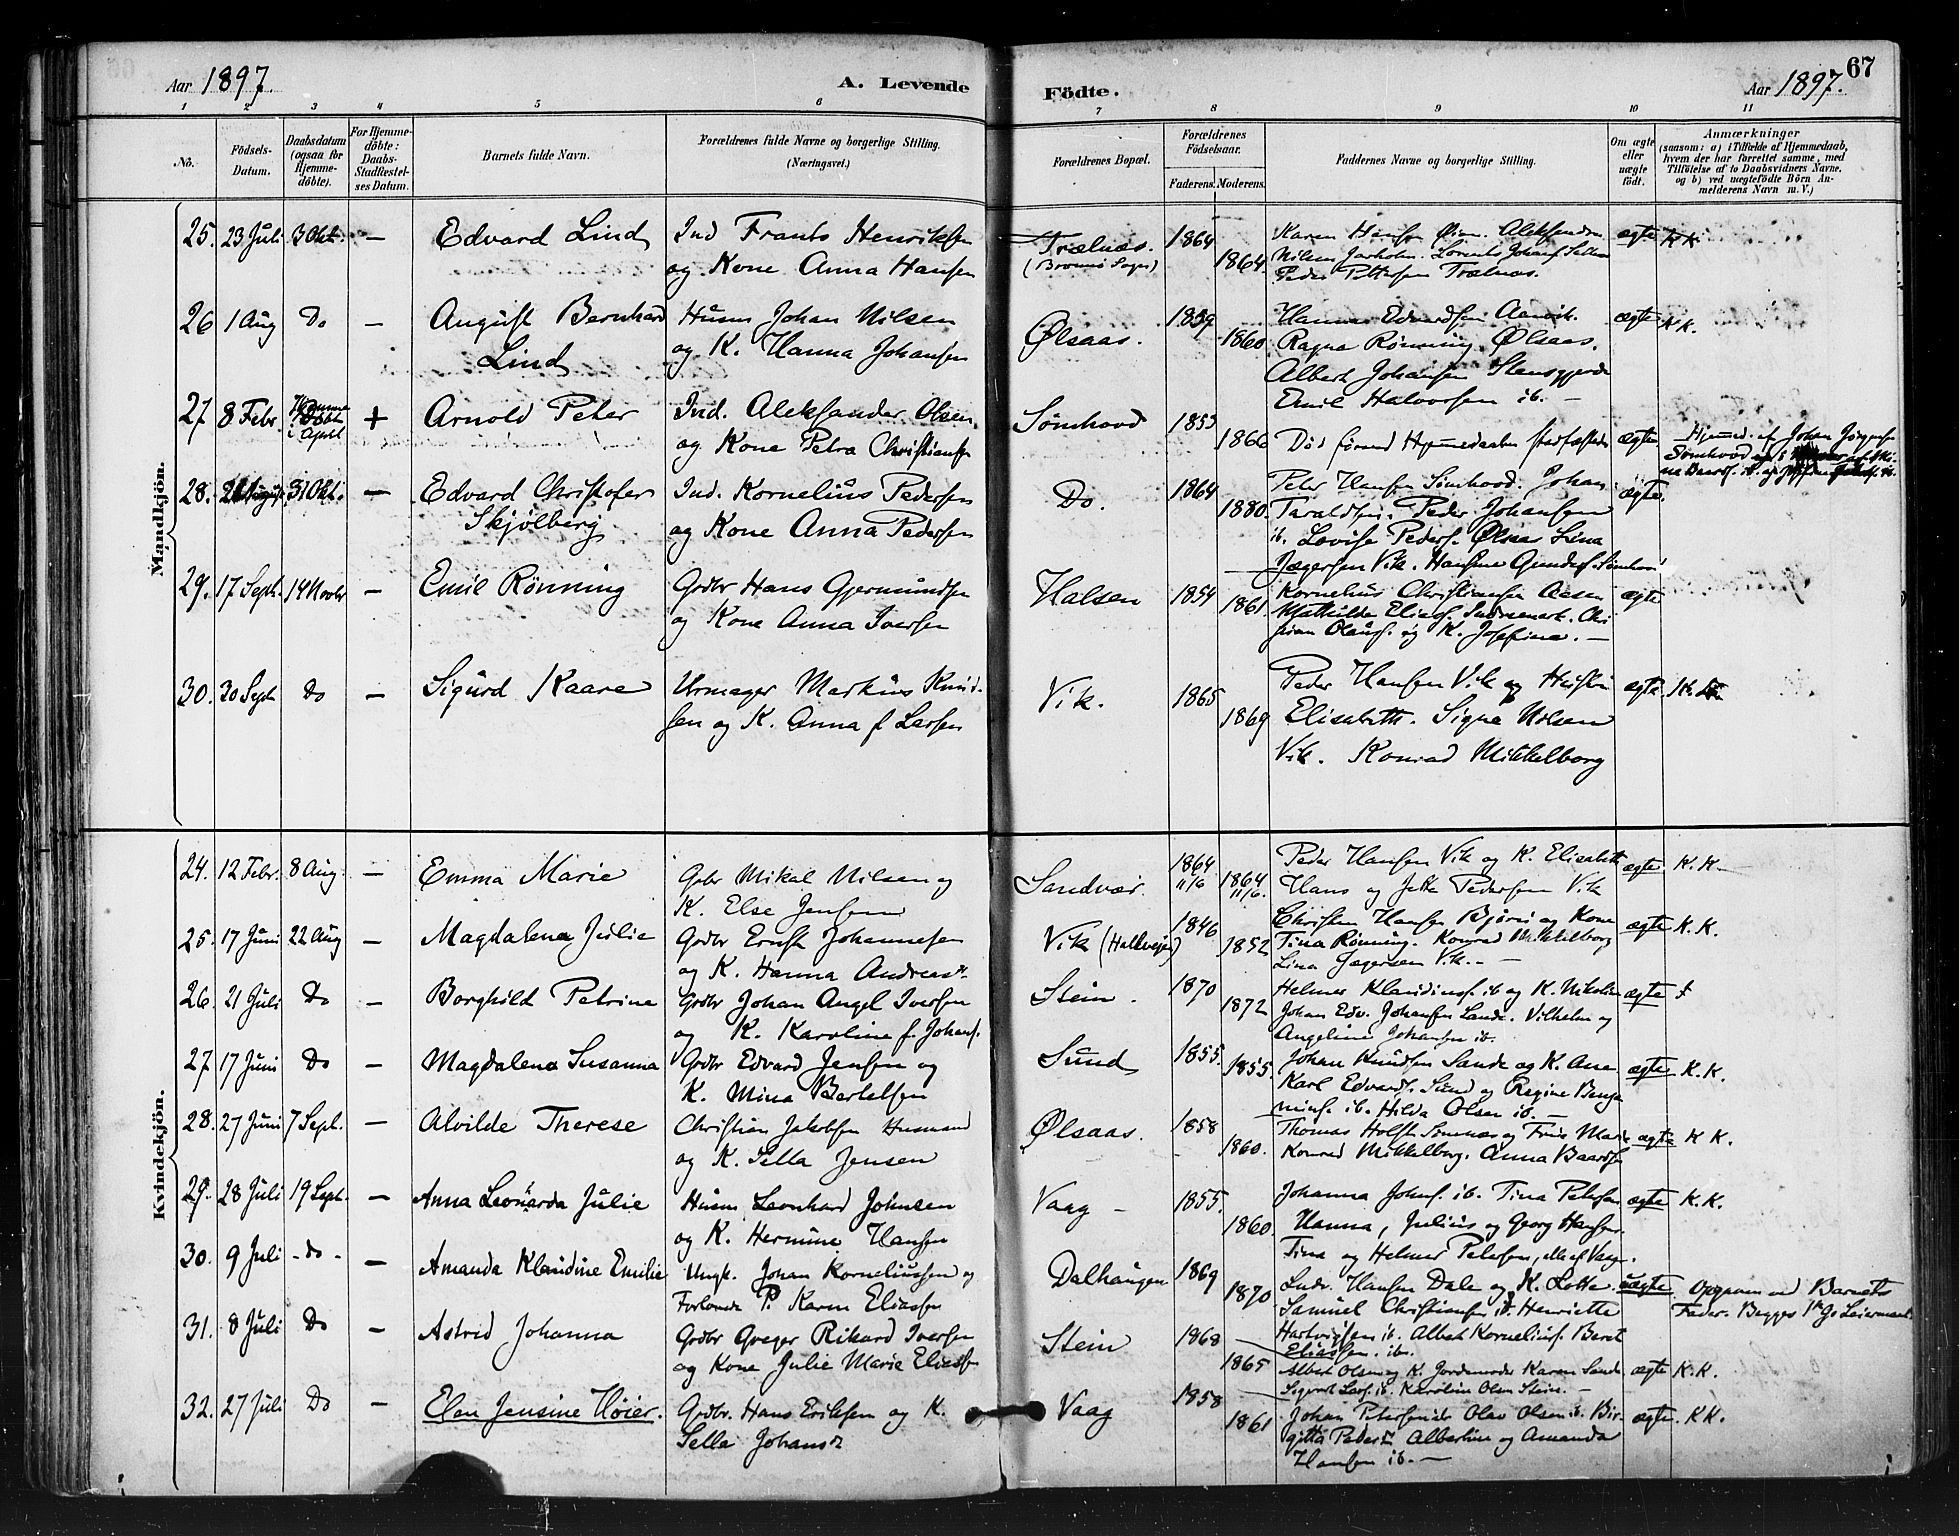 Aar 1897.
A. Levende
Födte.
Aar 1897.
67
1 2 3 4 5 6 7 8 9 10 11
No.
Födsels-
Datum.
Daabsdatum
(ogsaa for
Hjemme-
döbte).
For Hjemme-
döbte:
Daabs-
Stadfæstel-
ses Datum.
Barnets fulde Navn.
Forældrenes fulde Navne og borgerlige Stilling.
(Næringsvei.)
Forældrenes Bopæl.
Forældrenes
Födselsaar.
Faderens. Moderens.
Faddernes Navne og borgerlige Stilling.
Om ægte
eller
uægte
födt.
Anmærkninger
(saasom: a) i Tilfælde af Hjemmedaab,
hvem der har forrettet samme, med
Tilföielse af to Daabsvidners Navne,
og b) ved uægtefödte Börn An-
melderens Navn m. V.)
Mandkjön.
25. 23 Juli 3 Okt. — Edvard Lind
Ind Frants Henriksen
og Kone Anna Hansen
Trælnæs.
(Brønnø Sogn)
1864 1864.
Peder Pettersen Trælnæs.
ægte K.K.
26 1 Aug Do — August Bernhard
Lind
Husm Johan Nilsen
og K. Hanna Johansen
Ølsaas.
1859 1860
Hanna Edvardsen Aarvik.
Ragna Rønning Ølsaas.
Albert Johansen Stensgjerde
Emil Halvorsen ib. —
ægte K.K.
27 8 Febr. Hjemme
Døbt
i April
+ Arnold Peter
Ind. Aleksander Olsen
og Kone Petra Christiansen
Sømhovd
1853 1866
Død førend Hjemmedaaben stadfæstedes
ægte
Hjemmed. af Johan Jörgensen
Sømhovd
28. 21 August 31 Okt. — Edvard Christofer
Skjølberg
Ind. Kornelius Pedersen
og Kone Anna Pedersen
Do.
1864 1880.
Peter Hansen Sømhovd. Johan
Taraldsen. Peder Johansen
ib. Lovise Peders. Ølsaas Lina
Jægersen Vik.
ægte.
29. 17 Sept. 14 Novbr — Emil Rønning
Grdbr Hans Gjermundsen
og Kone Anna Iversen
Halsen
1854 1861.
Kornelius Christiansen Aasen
og K. Josefine. —
ægte
30. 30 Sept Do — Sigurd Kaare
Urmager Markus Knud-
sen og K. Anna f Larsen
Vik.
1865 1869
Peder Hansen Vik og
Elisabeth. Signe Nilsen
Vik. Konrad Mikkelborg
ægte
Kvindekjön.
24. 12 Febr. 8 Aug — Emma Marie
Gbr Mikal Nilsen og
K. Else Jensen
Sandvær.
1864
11/6
1864
11/6.
Peder Hansen Vik og K. Elisabeth
Hans og Jette Pedersen Vik
ægte K.K.
25. 17 Juni 22 Aug — Magdalena Julie
Grdbr Ernst Johannesen
og K. Hanna Andreasdr.
Vik (Halkveien)
1846 1852
Christen Hansen Bjørn og Kone
Tina Rønning. Konrad Mikkelborg
Lina Jægersen Vik. —
ægte K.K.
26. 21 Juli Do — Borghild Petrine
Grdbr Johan Angel Iversen
og K. Karoline f. Johans.
Stein.
1870 1872
Helmer Klaudiuss. ib og K. Nikoline
Johan Edv. Johansen Sande. Vilhelm og
Angeline Johansen ib.
ægte
27 17 Juni Do — Magdalena Susanna
Grdbr Edvard Jensen og
K. Mina Bertelsen
Sund
1855. 1855.
Johan Knudsen Sande og K. Ane
Karl Edvards. Sund og Regine Benja
mins. ib. Hilda Olsen ib. —
ægte K.K.
28. 27 Juni 7 Sept. — Alvilde Therese
Christian Jakobsen Husmand
og K. Sella Jensen
Ølsaas.
1858 1860.
Thomas Holst Sømnæs og Frus Marie
Konrad Mikkelborg. Anna Baardsen
ægte K K.
29. 28 Juli 19 Sept. — Anna Leonarda Julie
Husm Leonhard Johnsen
og K. Hermine Hansen
Vaag —
1855. 1860.
Johanna Johns. ib. Tina Petersen
Hanna, Julius og Georg Hansen.
Tina og Helmer Petersen, alle af Vaag.
ægte K.K.
30. 9 Juli - do - — Amanda Klaudine Emilie
Ungk. Johan Korneliussen og
Forlovede P. Karen Eliassen
Dalhaugen
1869 1870
Ludv. Hansen Dale og K. Lotte.
Samuel Christiansen ib. Henriette
Hartvigsen ib. Albert Kornelius. Beret
Eliassen. ib.
uægte Opgiven ved Barnets
Fader. Begges 1ste G. Leiermaal
31. 8 Juli Do — Astrid Johanna
Grdbr Greger Rikard Iversen
og Kone Julie Marie Eliassen
Stein
1868 1865
Albert Olsen og K. Karen Sande
Sigvart Lars. ib. Karoline Olsen Stein. —
ægte K.K.
32. 27 Juli Do — Elen Jensine Høier.
Grdbr. Hans Eriksen og K.
Sella Johansdr
Vaag
1858 1861
Johan Petersen ib Olav Olsen ib. Bir-
gitta Pedersdr Albertine og Amanda
Hansen ib. —
ægte. K K.